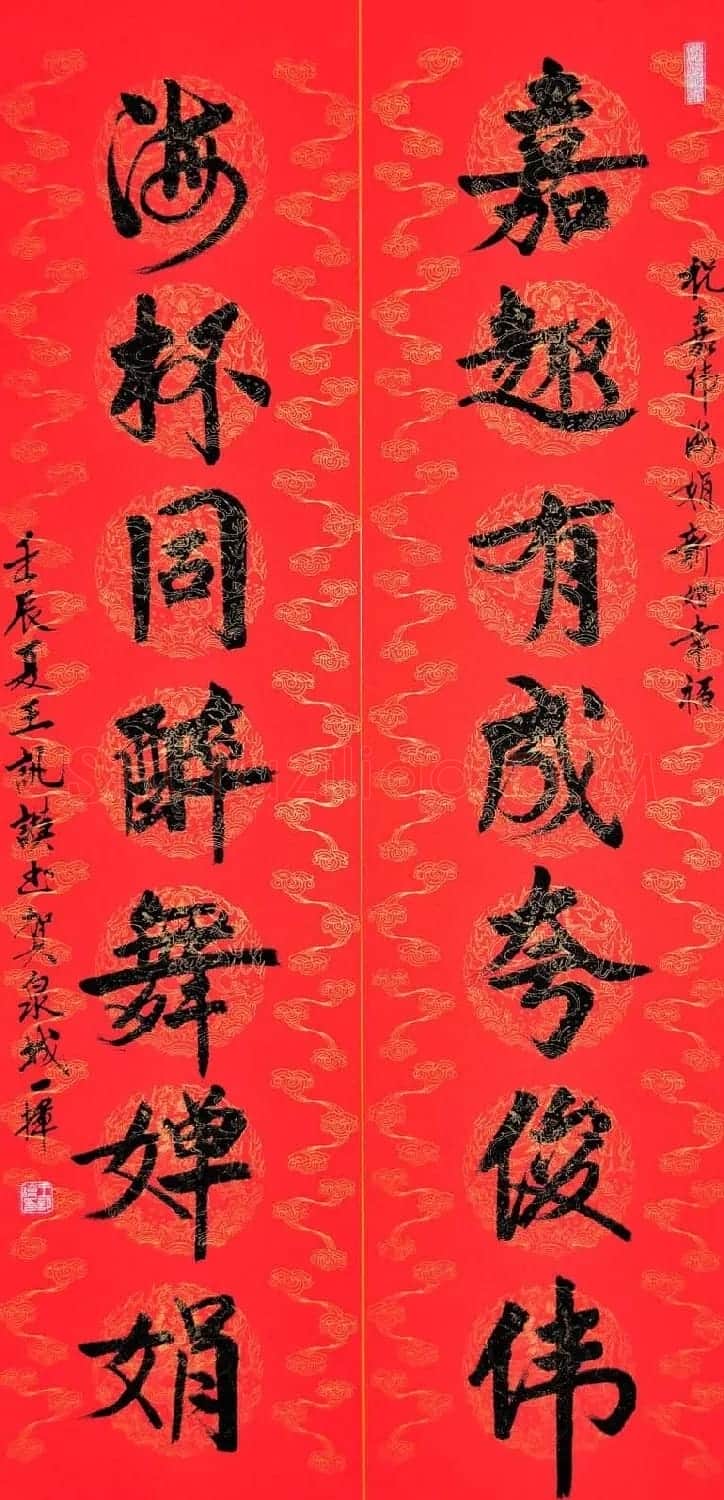 祝嘉伟海娟新婚幸福
嘉趣有成夸俊伟
海杯同醉舞婵娟
壬辰夏王譔书贺泉城一挥